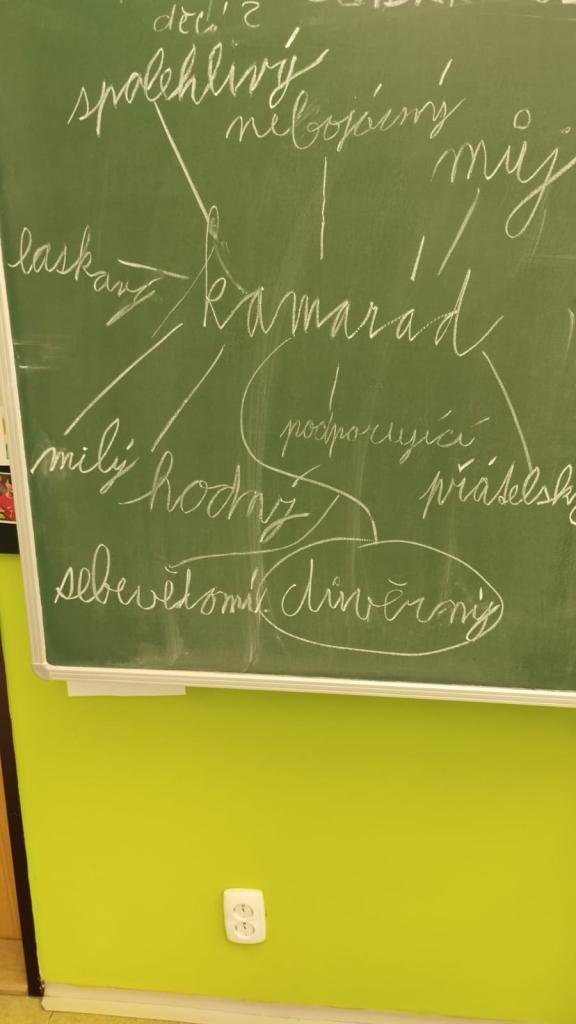 spolehlivý
nebojácný
můj
laskavý
kamarád
podporující
milý
hodný
přátelský
sebevědomí
důvěrný